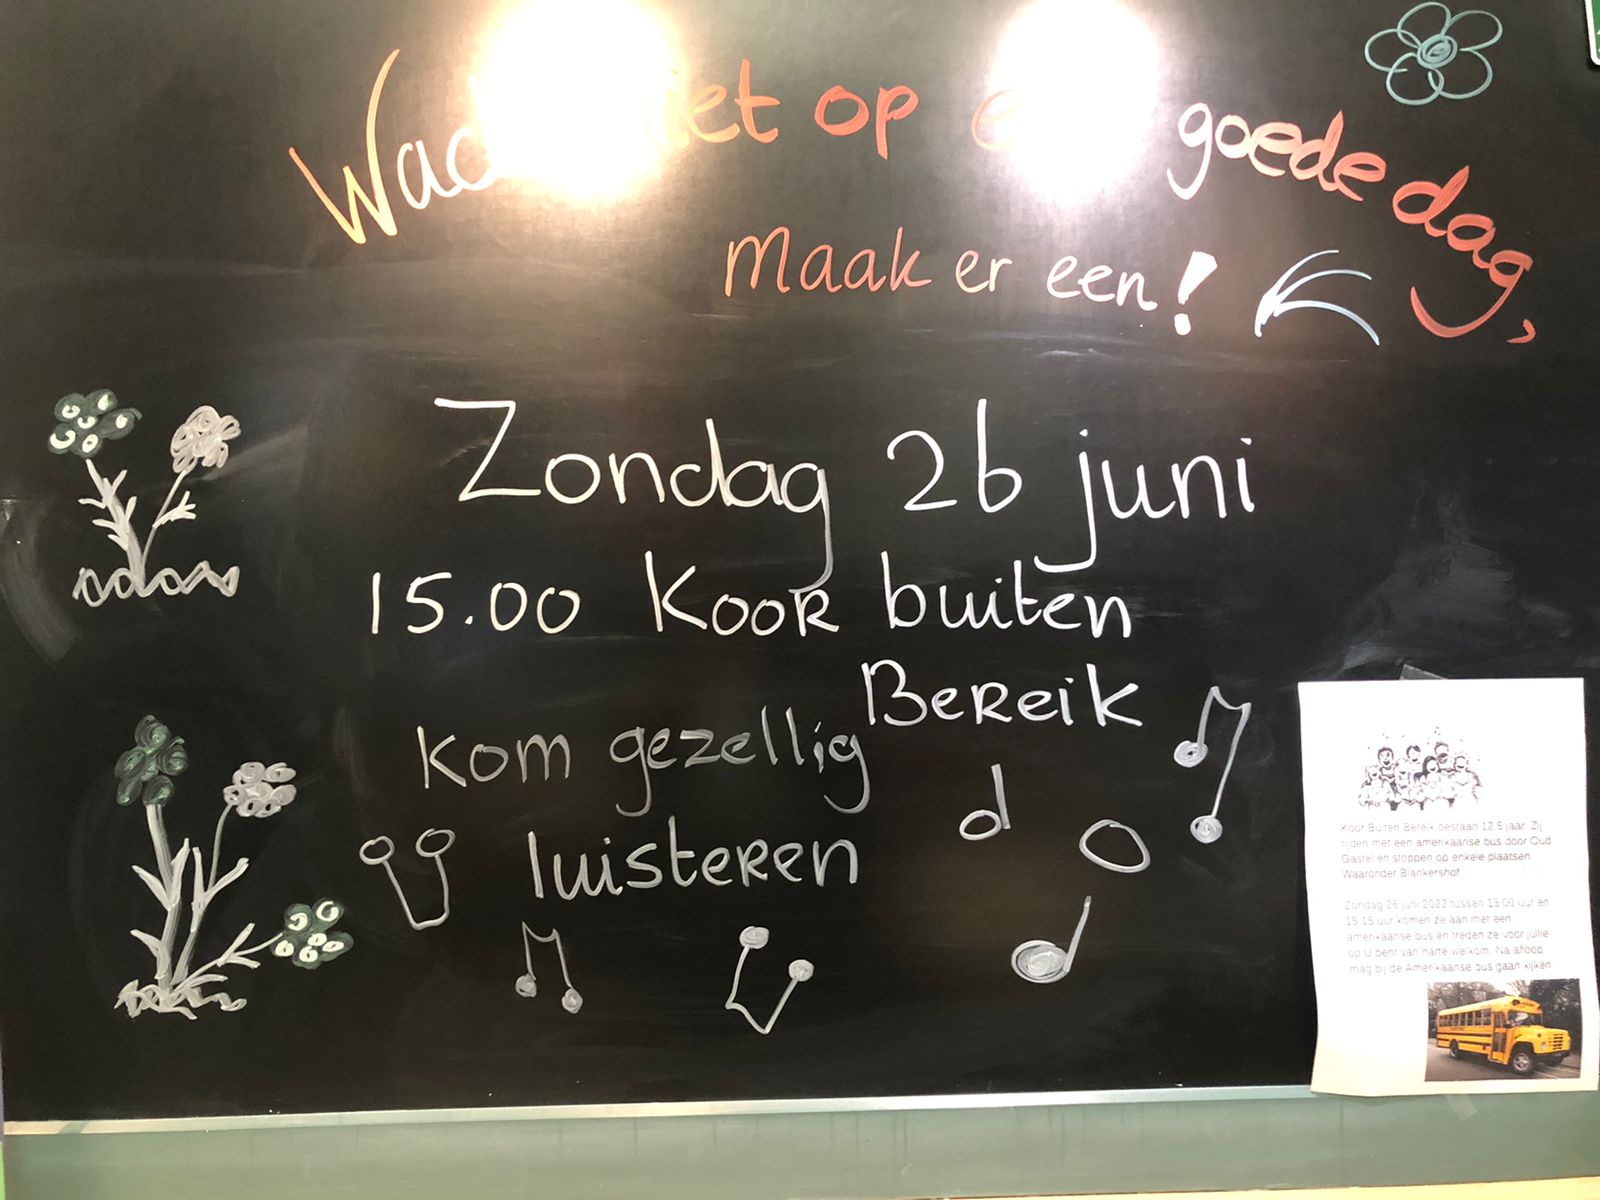 op goede dag,
maak er een!
Zondag 26 juni
15.00 Koor buiten
Bereik
kom gezellig
luisteren
Koor Buiten Bereik bestaan 12,5 jaar. Zij
rijden met een amerikaanse bus door Oud
Gastel en stoppen op enkele plaatsen.
Waaronder Blankershof
Zondag 26 juni 2022 tussen 15.00 uur en
15.15 uur komen ze aan met een
amerikaanse bus en treden ze voor jullie
op. U bent van harte welkom. Na afloop
mag bij de Amerikaanse bus gaan kijken.